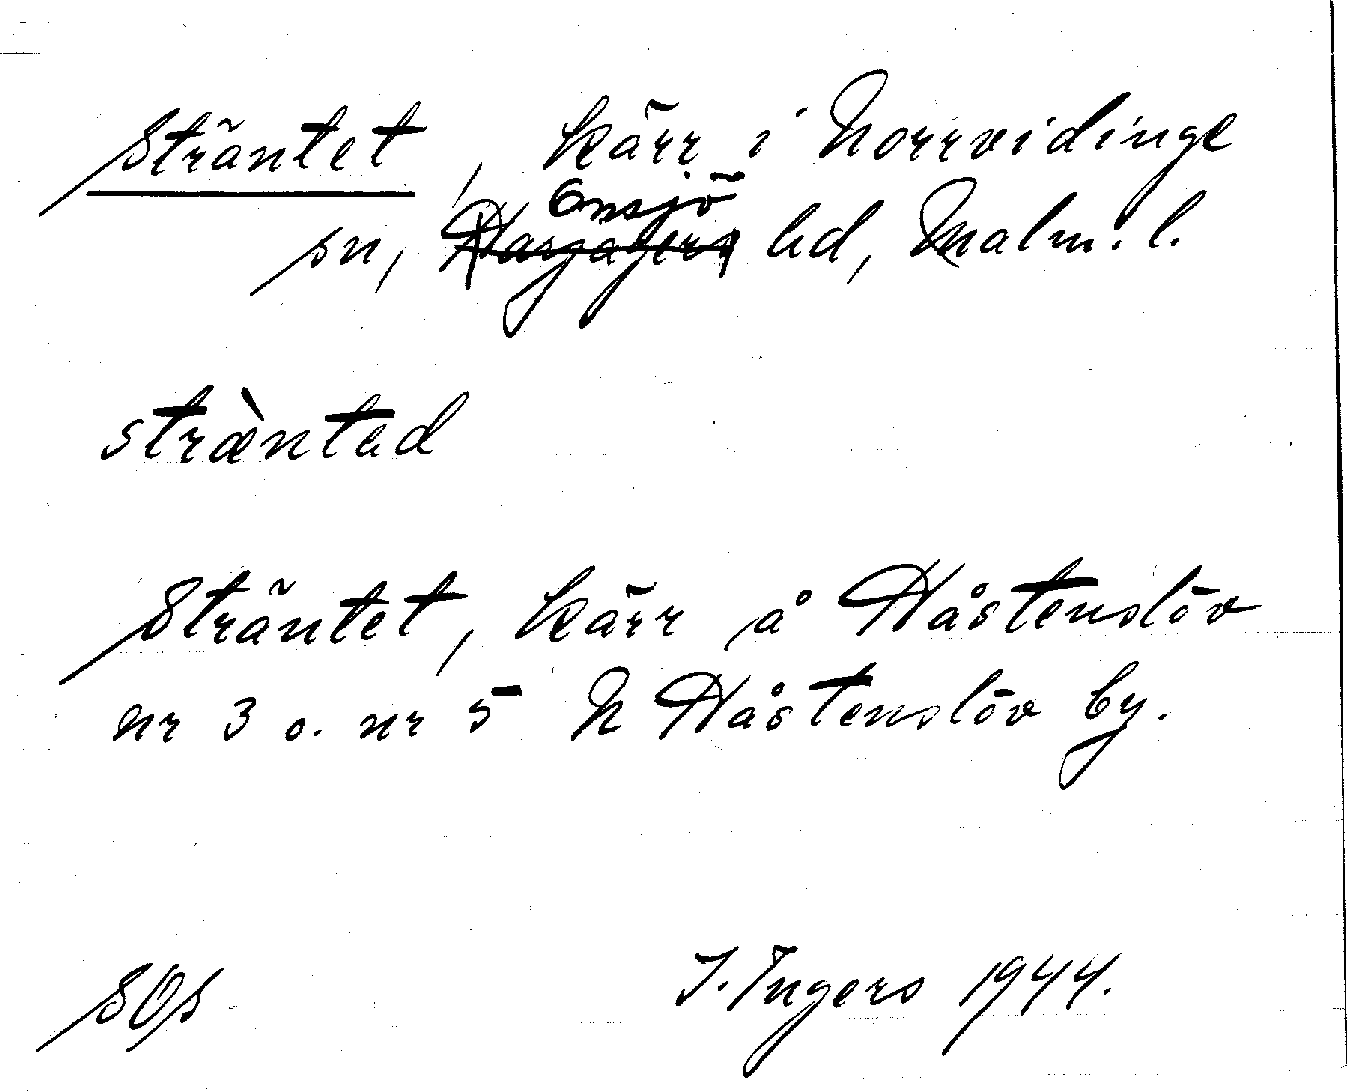 Sträntet, kärr i Norrvidinge
Onsjö
sn, Harjagers hd, Malm. l.
stræ̀ntad
Sträntet, kärr å Håstenslöv
nr 3 o. nr 5 N Håstenslöv by.
SOs
I. Ingers 1944.